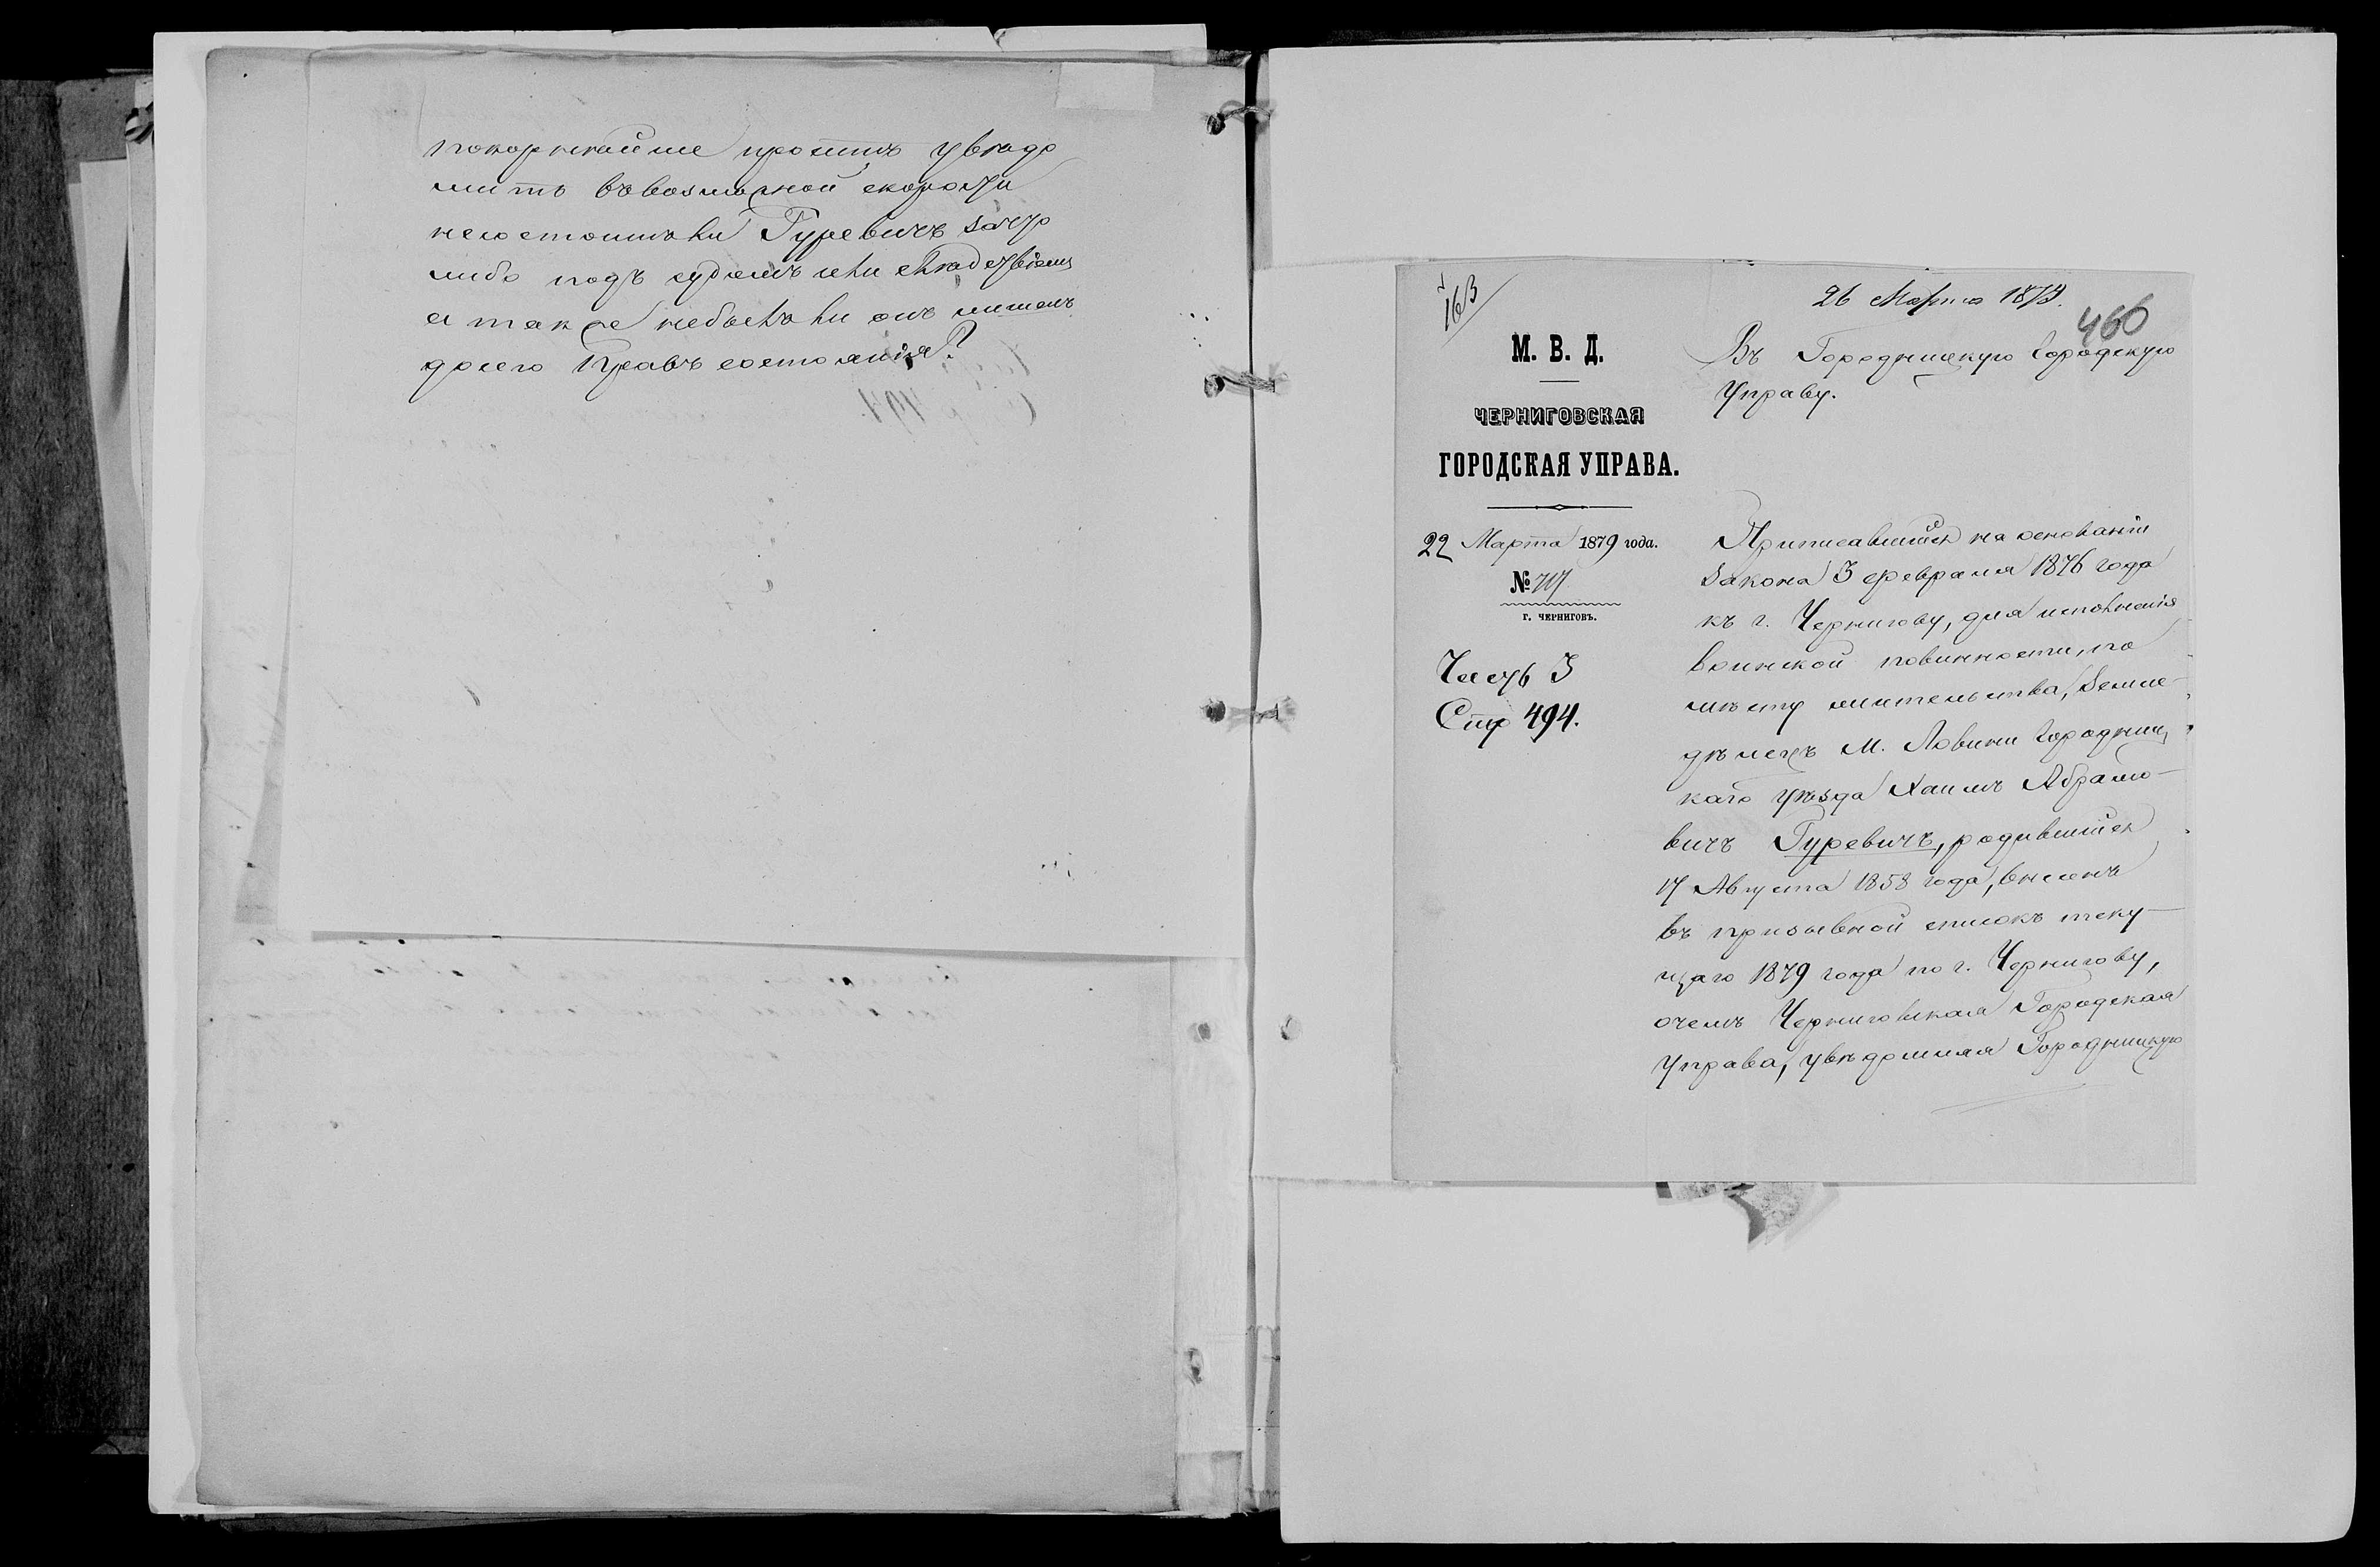 покорнѣйше проситъ увѣдо
мить въ возможной скорости
несостоитъ ли Гуревичъ зачѣ
либо подъ судомъ или слѣдствіемъ
а также небылъ ли онъ лишенъ
досего Правъ состоянія?
163
26 Марта 1879.
460
М. В. Д.
ЧЕРНИГОВСКАЯ
ГОРОДСКАЯ УПРАВА.
22 Марта 1879 года.
№ 717
г. ЧЕРНИГОВЪ.
Часть 3
Стр 494.
Въ Городницкую Городскую
Управу.
Приписавшійся на основаніи
Закона 3 февраля 1876 года
къ г. Чернигову, для исполненія
воинской повинности, по
мѣсту жительства, Земле-
дѣлецъ М. Ловини Городниц
каго уѣзда Хаимъ Абрамо-
вичъ Гуревичъ, родившійся
17 Августа 1858 года, внесенъ
въ призывной списокъ теку-
щаго 1879 года по г. Чернигову,
очемъ Черниговская Городская
Управа, увѣдомляя Городницкую